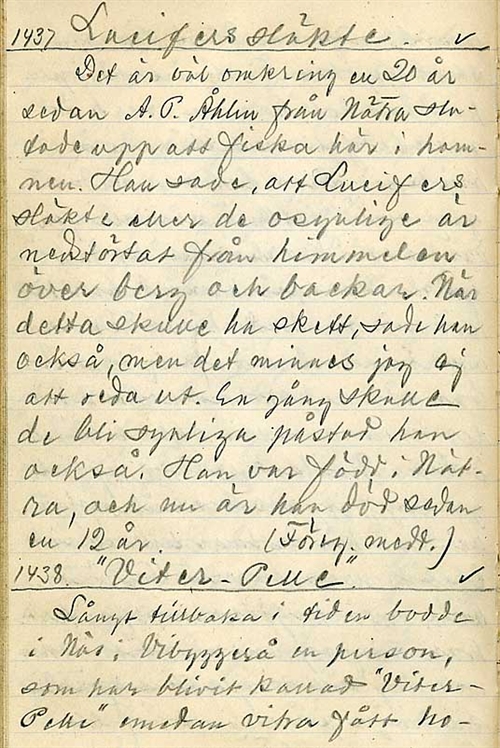 1437 Lucifers släkte. ✓
Det är väl omkring en 20 år
sedan A. P. Åhlin från Nätra slu-
tade upp att fiska här i ham-
nen. Han sade, att Lucifers
släkte eller de osynlige är
nedstörtat från himmelen
över berg och backar. När
detta skulle ha skett, sade han
också, men det minnes jag ej
att reda ut. En gång skulle
de bli synliga påstod han
också. Han var född i Nät-
ra, och nu är han död sedan
en 12 år. (Föreg. medd.)
1438. "Viter-Pelle". ✓
Långt tillbaka i tiden bodde
i Näs i Vibyggerå en person,
som har blivit kallad "Viter-
Pelle" emedan vitra fått ho-